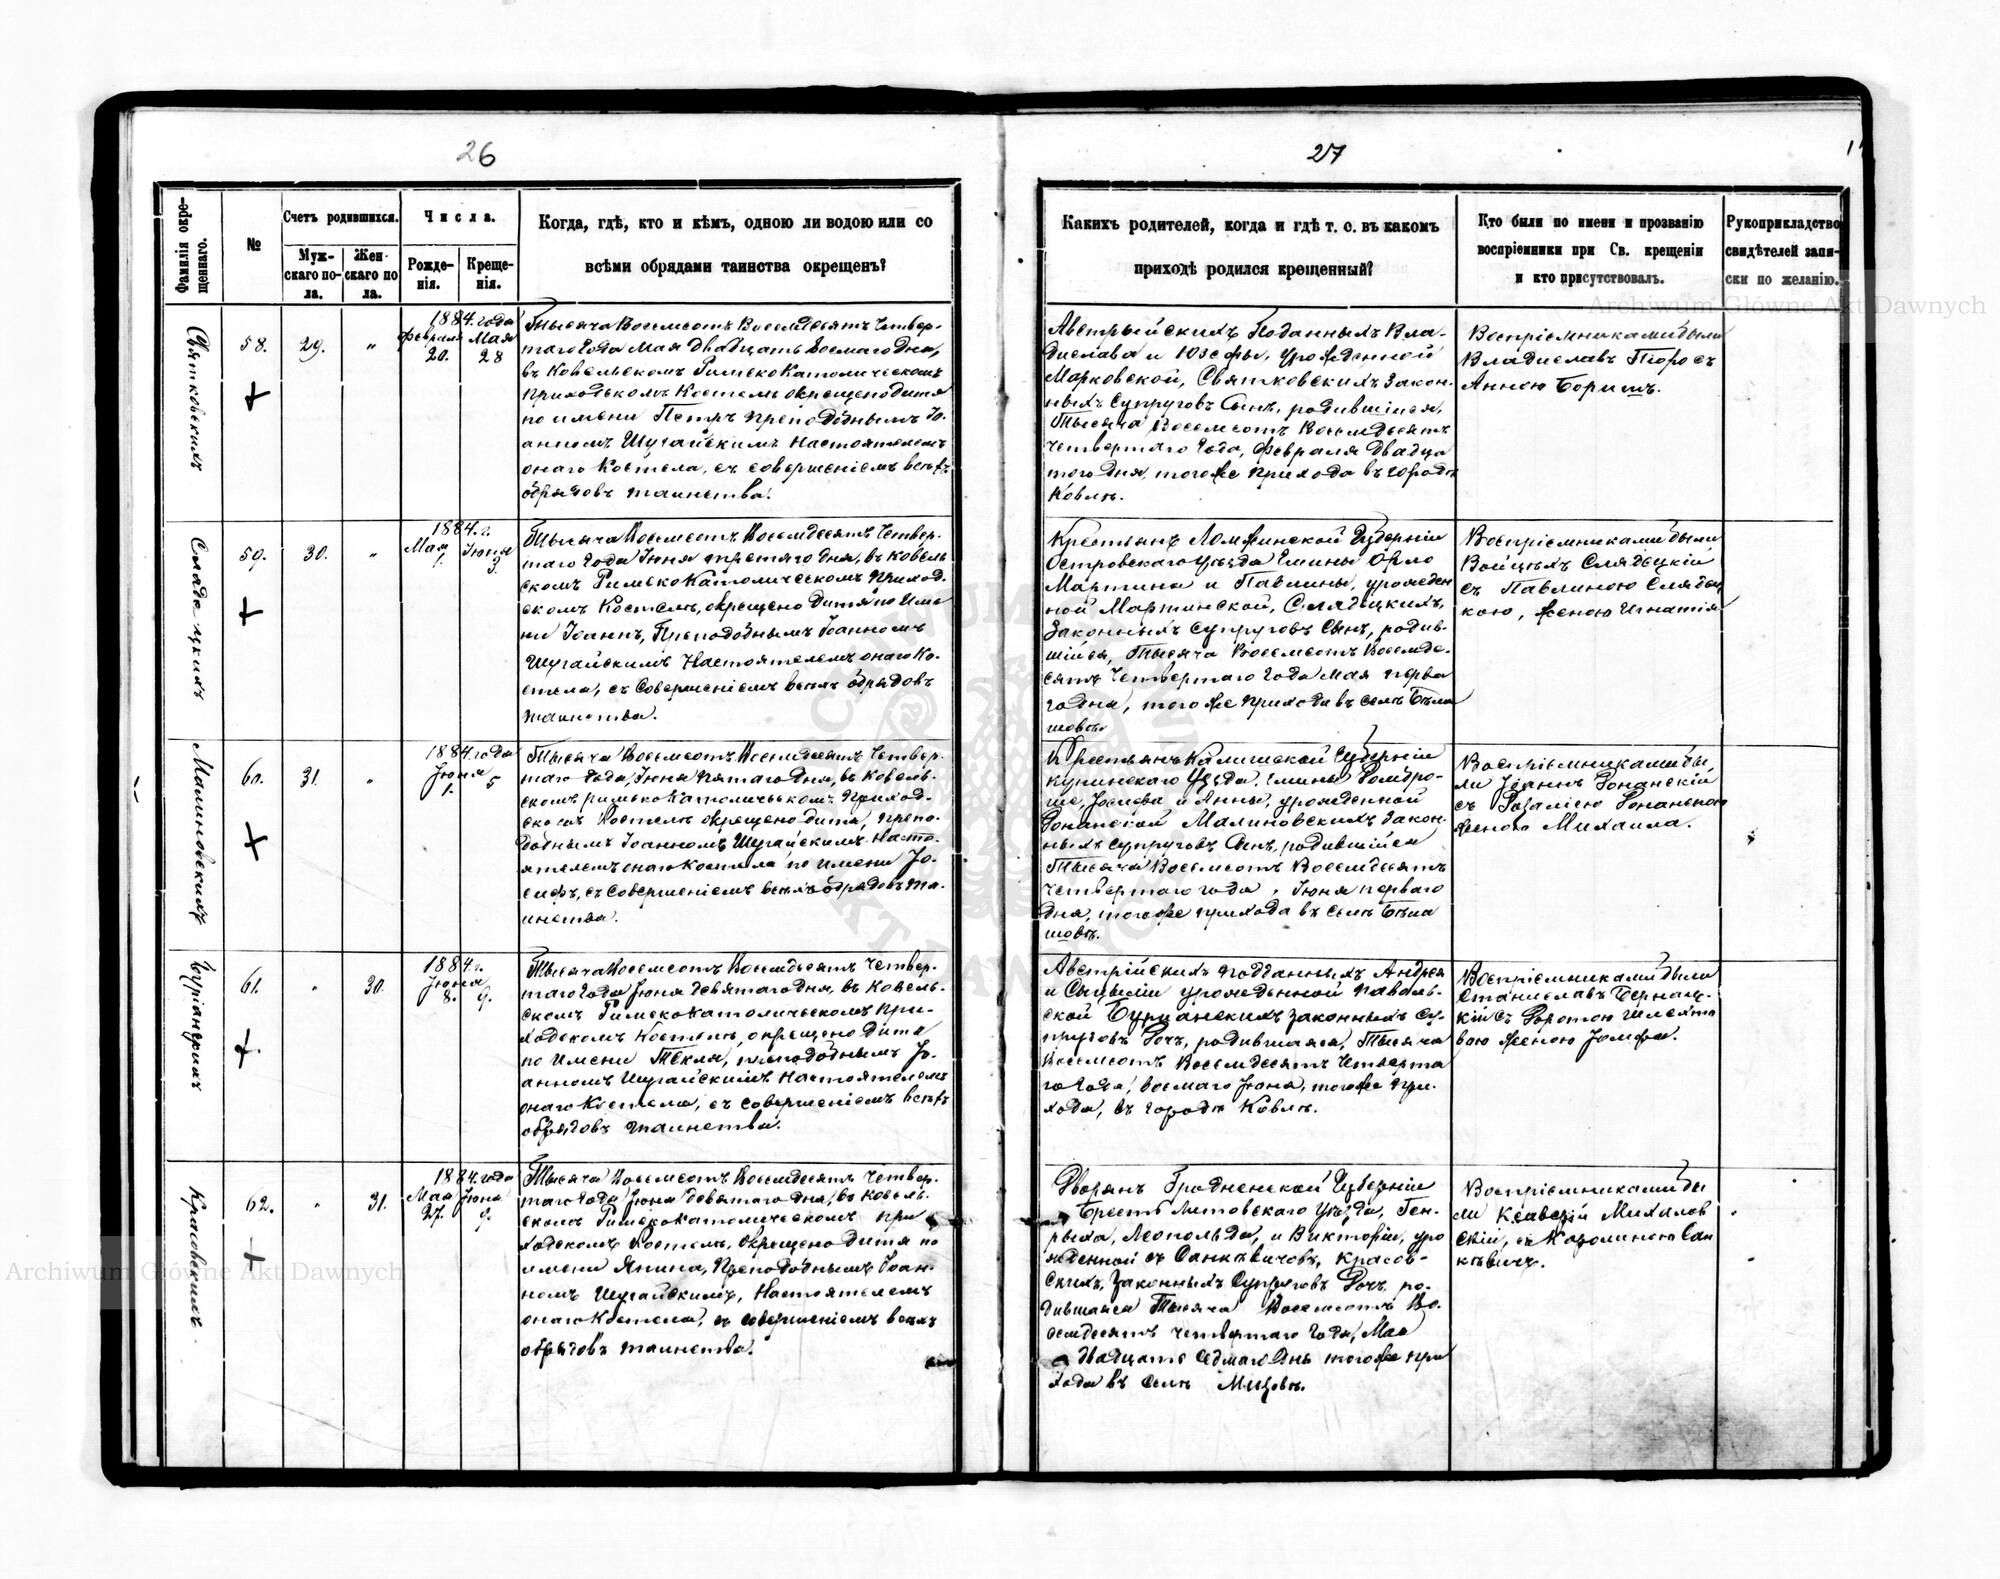 26
Фамилія окре-
щеннаго.
№
Счетъ родившихся.
Муж-
скаго по-
ла.
Жен-
скаго по
ла.
Числа.
Рожде-
нія.
Креще-
нія.
Когда, гдѣ, кто и кѣмъ, одною ли водою или со
всѣми обрядами таинства окрещенъ?
Святковскихъ
58.
29.
"
1884. года
Февраля Мая
20. 28
Тысяча Восемсотъ Восемдесятъ Четвер-
таго Года Мая двадцать Восмаго дня,
въ Ковельскомъ Римско Католическомъ
Приходскомъ Костелѣ окрещено дитя
по имени Петръ Преподобнымъ Іо-
анномъ Шугайскимъ Настоятелемъ
онаго Костела, съ совершеніемъ всѣхъ
обрядовъ таинства.
59.
30.
"
1884. г.
Мая Іюня
1. 3.
Тысяча Восемсотъ Восемдесятъ Четвер-
таго Года Іюня третяго дня, въ Ковель
скомъ Римско Католическомъ Приход-
скомъ Костелѣ, окрещено дитя по Име
ни Іоаннъ, Преподобнымъ Іоанномъ
Шугайскимъ Настоятелемъ онаго Ко-
стела, съ Совершеніемъ всѣхъ обрядовъ
таинства.
Малиновскихъ
60.
31.
"
1884. года
Іюня
1. 5
Тысяча Восемсотъ Восемдесятъ Четвер-
таго Года, Іюня Пятаго дня, въ Ковель-
скомъ римско Католическомъ Приход-
скомъ Костелѣ окрещено дитя, Препо-
добнымъ Іоанномъ Шугайскимъ Насто-
ятелемъ онаго Костела по имени Іо-
сифъ, съ Совершеніемъ всѣхъ обрядовъ та-
инства.
61.
"
30.
1884. г.
Іюня
8. 9.
Тысяча Восемсотъ Восемдесятъ Четвер-
таго Года Іюня девятаго дня, въ Ковель-
скомъ Римско Католическомъ При-
ходскомъ Костелѣ, окрещено дитя
по Имени Текля, преподобнымъ Іо-
анномъ Шугайскимъ Настоятелемъ
онаго Костела, съ совершеніемъ всѣхъ
обрядовъ таинства.
Красовскихъ
62.
"
31.
1884. года
Мая Іюня
27. 9.
Тысяча Восемсотъ Восемдесятъ Четвер-
таго Года Іюня девятаго дня, въ Ковель-
скомъ Римско Католическомъ При
ходскомъ Костелѣ, окрещено дитя по
имени Янина, Преподобнымъ Іоан-
номъ Шугайскимъ, Настоятелемъ
онаго Костела, съ совершеніемъ всѣхъ
обрядовъ таинства.
27
Какихъ родителей, когда и гдѣ т. е. въ какомъ
приходѣ родился крещенный?
Кто были по имени и прозванію
воспріемники при Св. крещеніи
и кто присутствовалъ.
Рукоприкладство
свидѣтелей запи-
ски по желанію.
Австрыйскихъ Поданныхъ Вла-
дислава и Юзефы, урожденной
Марковской, Святковскихъ Закон-
ныхъ Супруговъ Сынъ, родившійся,
Тысяча Восемсотъ Восемдесятъ
Четвертаго Года, Февраля Двадца
таго дня, тогоже прихода въ городѣ
Ковлѣ.
Воспріемниками были
Владиславъ Піоро съ
Анною Боришъ.
Крестьянъ Ломжинской Губерніи
Островскаго Уѣзда Гмины Орло
Мартина и Павлины, урожден
ной Мартинской, Слядецкихъ,
Законныхъ супруговъ Сынъ, родив-
шійся, Тысяча Восемсотъ Восемде-
сятъ Четвертаго Года Мая перва
го дня, тогоже прихода въ селѣ Бѣла
шовѣ.
Воспріемниками были
Войцѣхъ Слядецкій
съ Павлиною Слядец
кою, женою Игнатія
Крестьянъ Калишской Губерніи
уѣзда, гмины
Іосифа и Анны, урожденной
Малиновскихъ Закон-
ныхъ супруговъ Сынъ, родившійся
Тысяча Восемсотъ Восемдесятъ
Четвертаго года, Іюня перваго
дня, тогоже прихода въ селѣ Бѣла
шовѣ.
Воспріемниками бы,
ли Іоаннъ
съ Розаліею
женою Михаила.
Австрійскихъ подданныхъ Андрея
и урожденной
ской законныхъ су-
пруговъ Дочь, родившаяся, Тысяча
Восемсотъ Восемдесятъ Четверта
го Года, восмаго Іюня, тогоже При-
хода, въ городѣ Ковлѣ.
Воспріемниками были
Станиславъ
кій съ Доротою
вою женою
Дворянъ Гродненской Губерніи
Брестъ Литовскаго Уѣзда, Ген-
рыха, Леопольда, и Викторіи, уро
жденной съ Санкевичовъ, Красов-
скихъ, Законныхъ Супруговъ Дочь, ро-
дившаяся Тысяча Восемсотъ Во-
семдесятъ четвертаго Года, Мая
двадцать седмаго дня тогоже при
хода въ селѣ
Воспріемниками бы
ли Ксаверій Михалов
скій, съ Каролиною Сан
кѣвичъ.
Archiwum Główne Akt Dawnych
Archiwum Główne Akt Dawnych